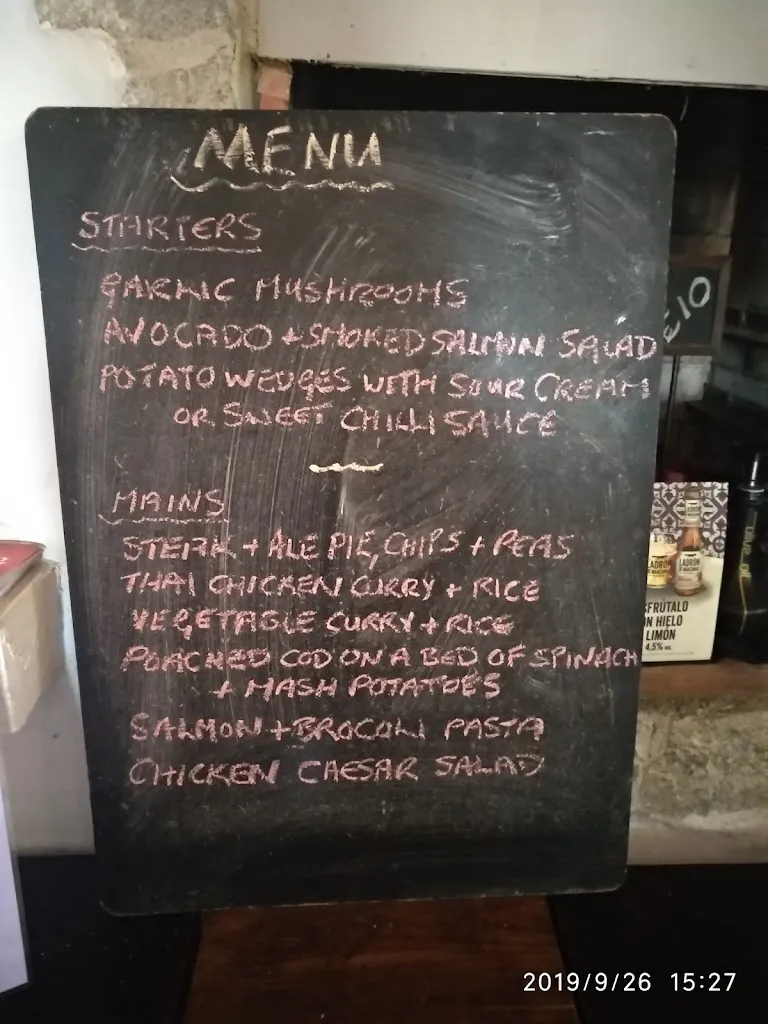 MENU
STARTERS
GARLIC MUSHROOMS
AVOCADO + SMOKED SALMON SALAD
POTATO WEDGES WITH SOUR CREAM
OR SWEET CHILLI SAUCE
MAINS
STEAK + ALE PIE, CHIPS + PEAS
THAI CHICKEN CURRY + RICE
VEGETABLE CURRY + RICE
POACHED COD ON A BED OF SPINACH
+ MASH POTATOES
SALMON + BROCOLI PASTA
CHICKEN CAESAR SALAD
EIO
LADRÓN
LADRÓN
SFRÚTALO
ON HIELO
LIMÓN
4,5%
2019/9/26 15:27